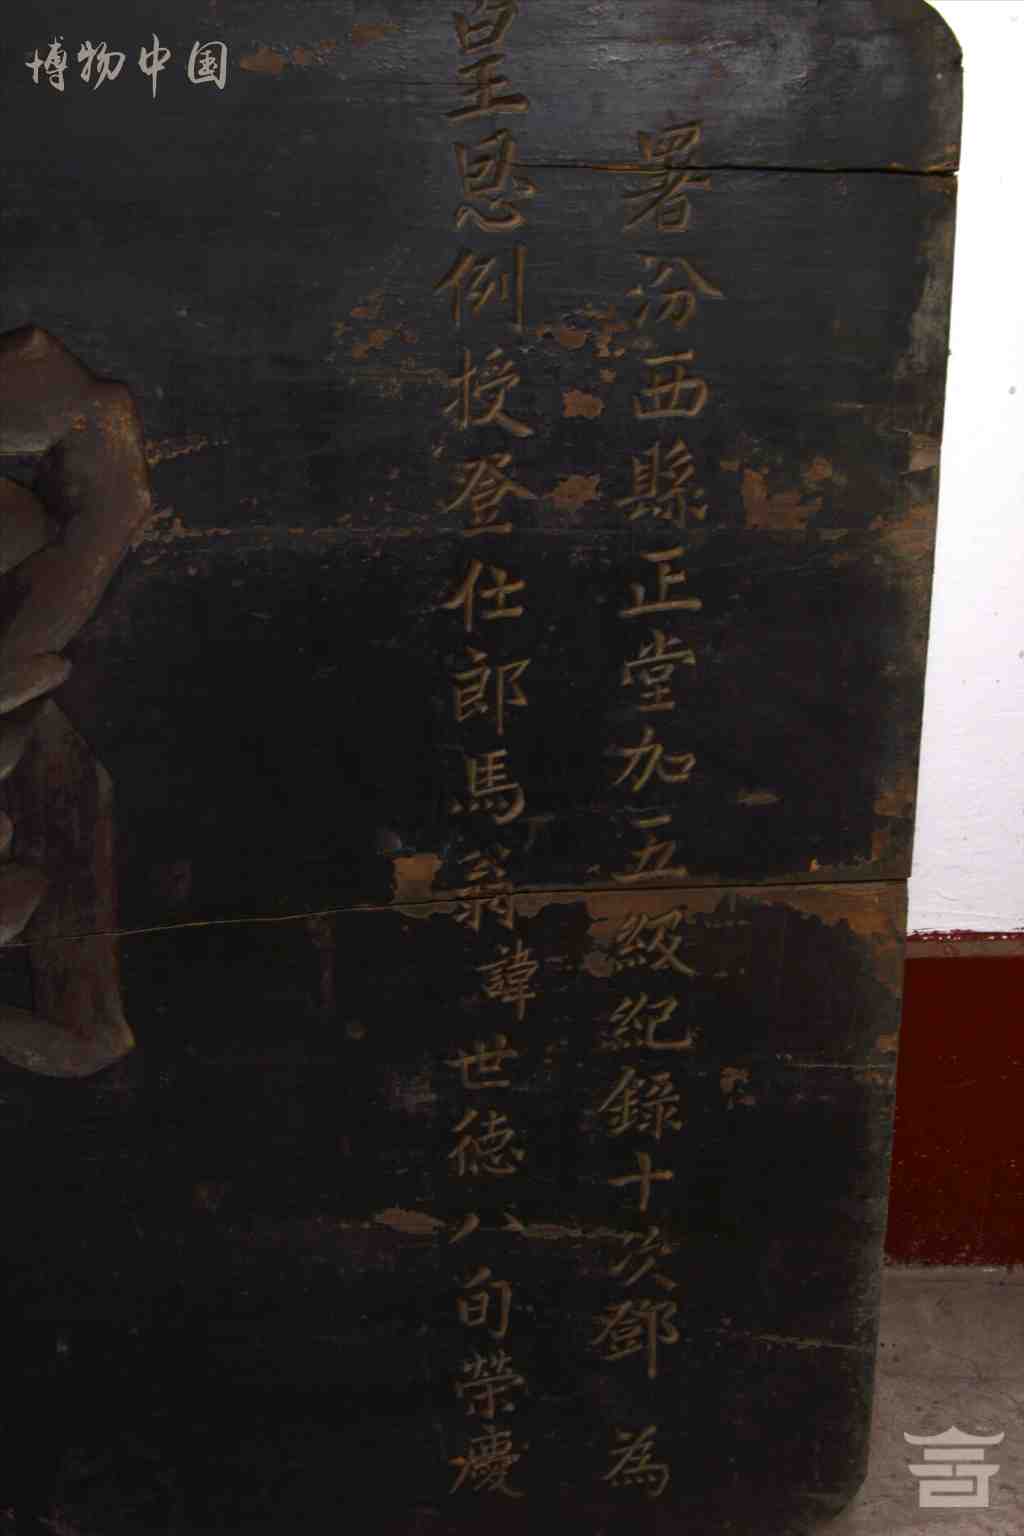 博物中国
署汾西縣正堂加五級紀錄十次鄧為
皇恩例授登仕郎馬翁諱世德八旬榮慶